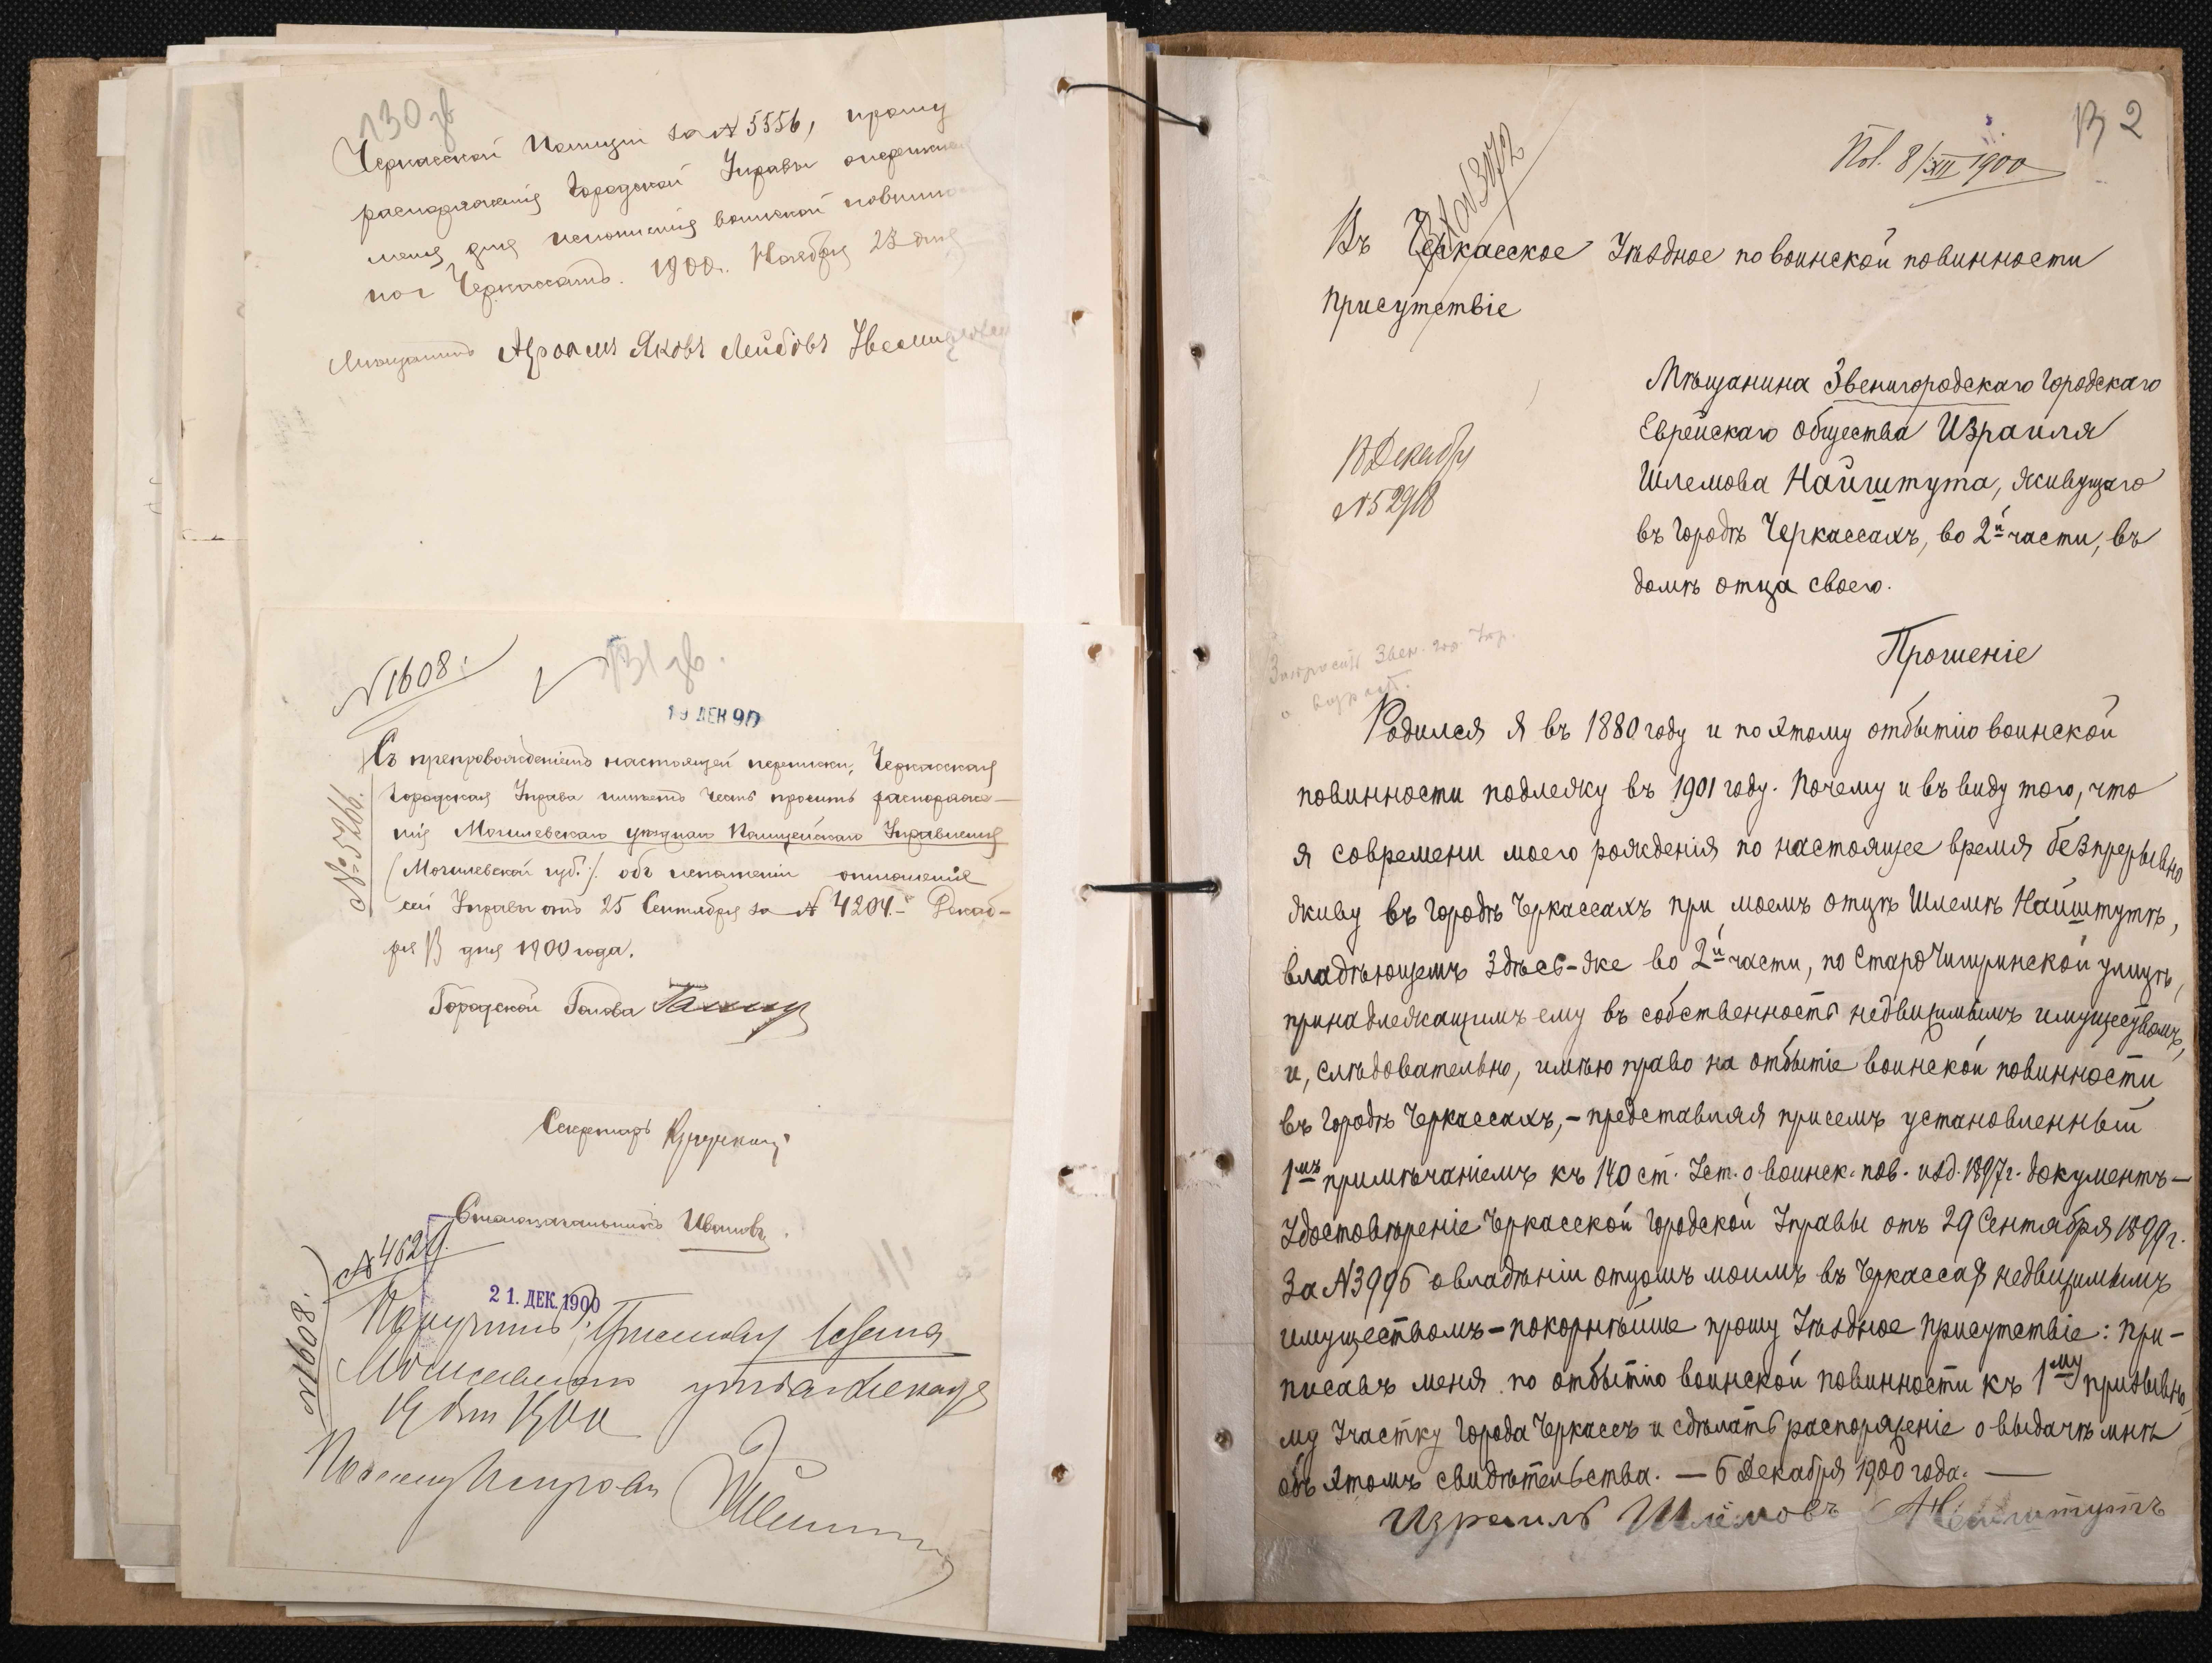 130 зв
Черкасской Полиціи за № 5556, прошу
распоряженія Городской Управы
меня для исполненія воинской
по г. Черкассамъ. 1900 г. Ноября 23 дня
Мѣщанинъ Аврамъ Яковъ Лейбовъ
№ 1608.
131 зв.
19 ДЕК 90
№ 5266.
Съ препровожденіемъ настоящей переписки, Черкасская
Городская Управа имѣетъ честь просить распоряже-
нія Могилевскаго уѣзднаго Полицейскаго Управленія
(Могилевской губ.) объ исполненіи отношенія
сей Управы отъ 25 Сентября за № 4204. – Декаб-
ря 13 дня 1900 года.
Городской Голова
Секретарь
Столоначальникъ Ивановъ
21. ДЕК. 1900
№ 1608.
132
Пол. 8/XII 1900
№ 3172
Въ Черкасское Уѣздное по воинской повинности
Присутствіе
Мѣщанина Звенигородскаго Городскаго
Еврейскаго Общества Израиля
Шлемова Найштута, живущаго
въ Городѣ Черкассахъ, во 2й части, въ
домѣ отца своего.
Декабря
№ 52918
Прошеніе
Родился я въ 1880 году и по этому отбытію воинской
повинности подлежу въ 1901 году. Почему и въ виду того, что
я современи моего рожденія по настоящее время безпрерывно
живу въ Городѣ Черкассахъ при моемъ отцѣ Шлемѣ Найштутѣ,
владѣющемъ здѣсь-же во 2й части, по Старо Чигиринской улицѣ,
принадлежащимъ ему въ собственность недвижимымъ имуществомъ,
и, слѣдовательно, имѣю право на отбытіе воинской повинности
въ Городѣ Черкассахъ, – представляя присемъ установленный
1мъ примѣчаніемъ къ 140 ст. Уст. о воинск. пов. изд. 1897 г. документъ –
Удостовѣреніе Черкасской Городской Управы отъ 29 Сентября 1899 г.
За № 3996 о владѣніи отцомъ моимъ въ Черкассах недвижимымъ
имуществомъ – покорнѣйше прошу Уѣздное Присутствіе: при-
писавъ меня по отбытію воинской повинности къ 1му призывно-
му Участку Города Черкассъ и сдѣлать распоряженіе о выдачѣ мнѣ
объ этомъ свидѣтельства. – 6 Декабря 1900 года. –
Израиль Шлемовъ Найштутъ